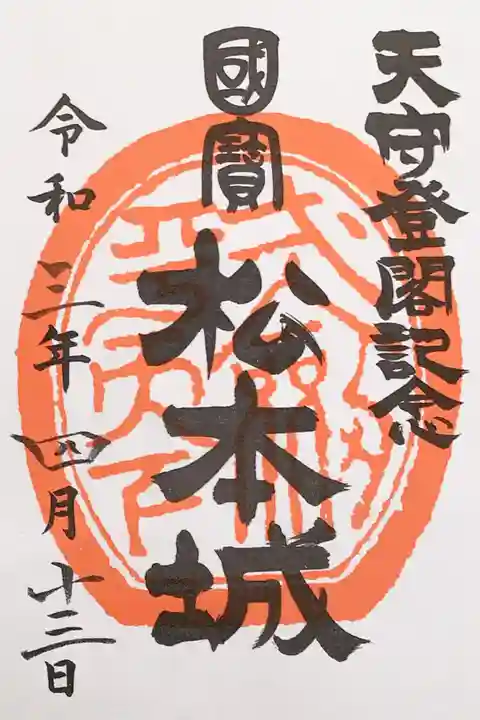 天守登閣記念
國寶
松本城
令和三年四月十三日